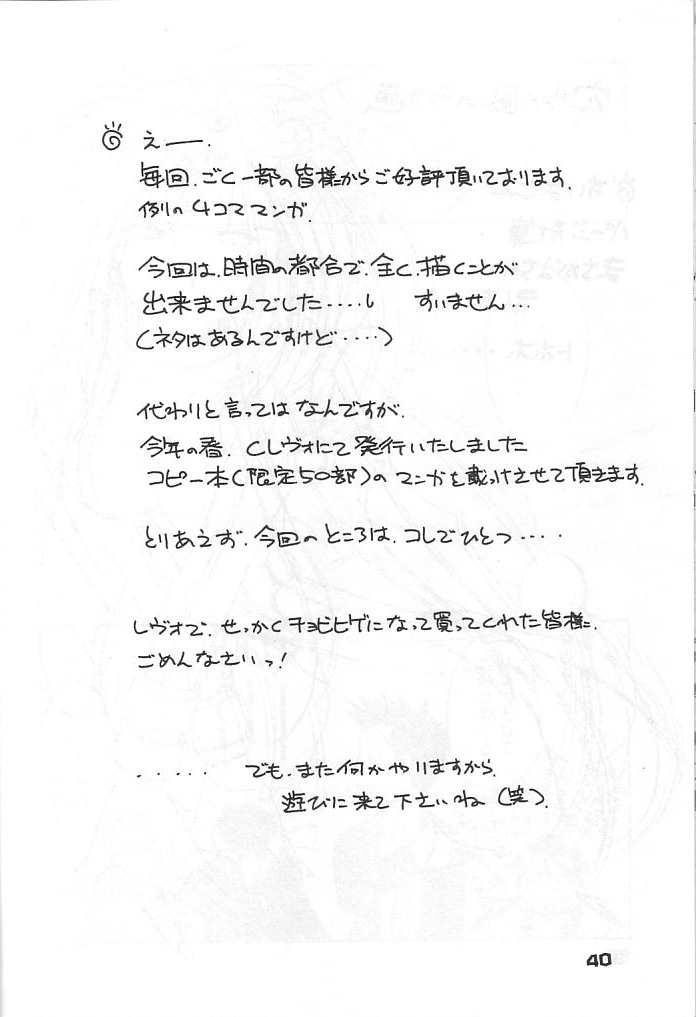 えー.
毎回、ごく一部の皆様からご好評頂いております、
例の4コママンガ、
今回は、時間の都合で、全く、描くことが
出来ませんでした・・・・し すいません・・・
（ネタはあるんですけど・・・・）
代わりと言ってはなんですが、
今年の春、Cレヴォにて発行いたしました
コピー本（限定50部）のマンガを載っけさせて頂きます、
とりあえず、今回のところは、コレでひとつ・・・・
レヴォで、せっかくチョビヒゲになって買ってくれた皆様、
ごめんなさいっ！
・・・・・ でも、また何かやりますから、
遊びに来て下さいね（笑）、
40